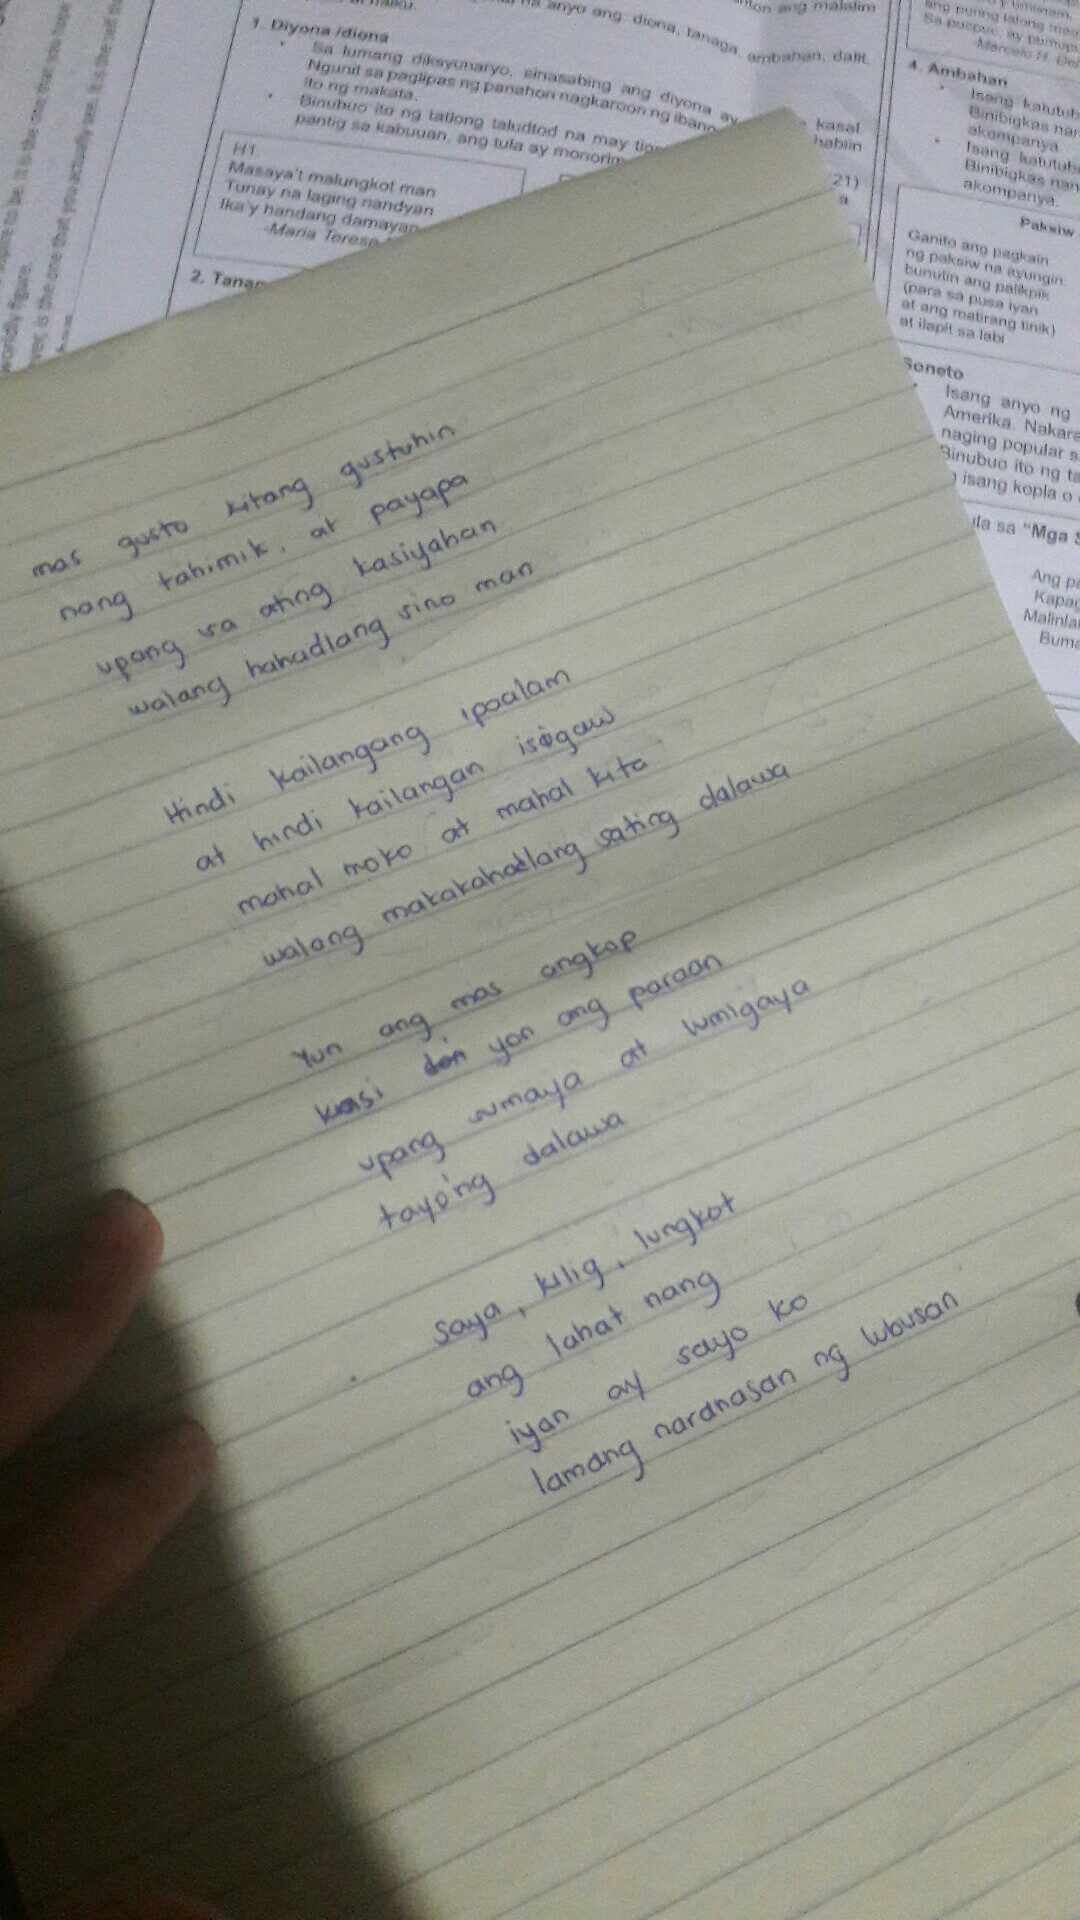 1. Diyona /diona
Sa lumang diksyunaryo, sinasabing ang diyona ay kasal.
Ngunit sa paglipas ng panahon nagkaroon ng ibang
ito ng makata.
Binubuo ito ng tatlong taludtod na may
pantig sa kabuuan, ang tula ay
H1.
Masaya't malungkot man
Tunay na laging nandyan
Ika'y handang damayan
-Maria Teresa
2.
4. Ambahan
Isang
Binibigkas
akompanya.
Isang
Binibigkas nan
akompanya.
Paksiw
Ganito ang pagkain
ng paksiw na ayungin:
bunutin ang palikpik
(para sa pusa iyan
at ang matirang tinik)
at ilapit sa labi
Soneto
Isang anyo ng
Amerika.
naging popular
Binubuo ito ng
isang kopla o
sa "Mga
Ang
mas gusto kitang gustuhin
nang tahimik, at payapa
upang sa ating kasiyahan
walang hahadlang sino man
Hindi kailangang ipaalam
at hindi kailangan isigaw
mahal moko at mahal kita
walang makakahadlang sating dalawa
Yun ang mas angkop
kasi yon ang paraan
upang sumaya at lumigaya
tayo'ng dalawa
saya, kilig, lungkot
ang lahat nang
iyan ay sayo ko
lamang naranasan ng lubusan